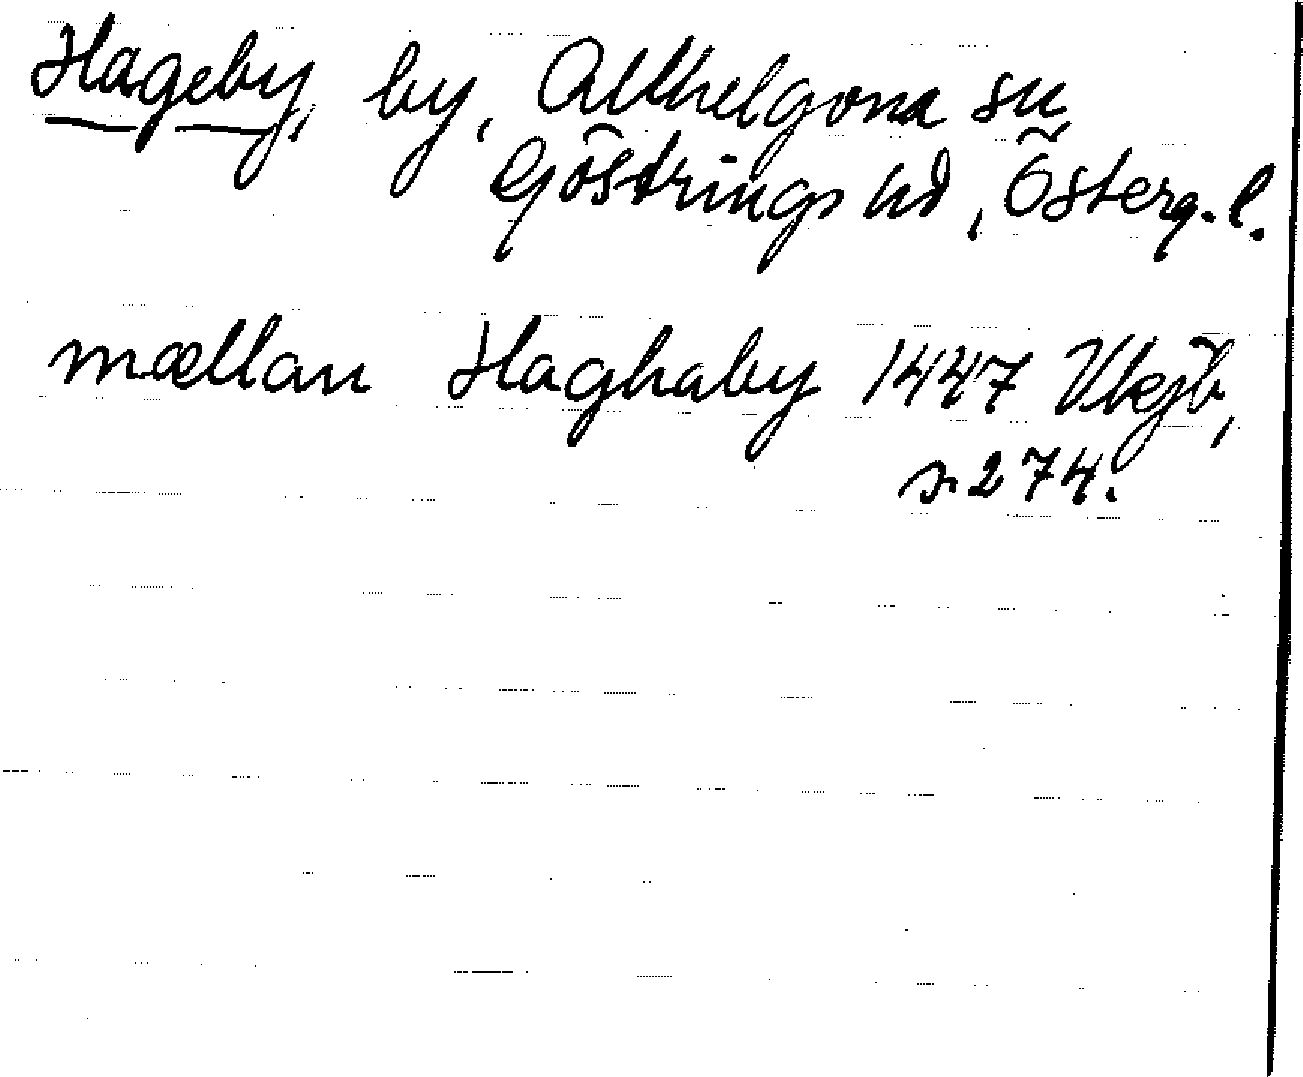 Hageby, by, Allhelgona sn,
Göstrings hd, Österg.l.
mællan Haghaby 1447 Vkjb,
s. 274.